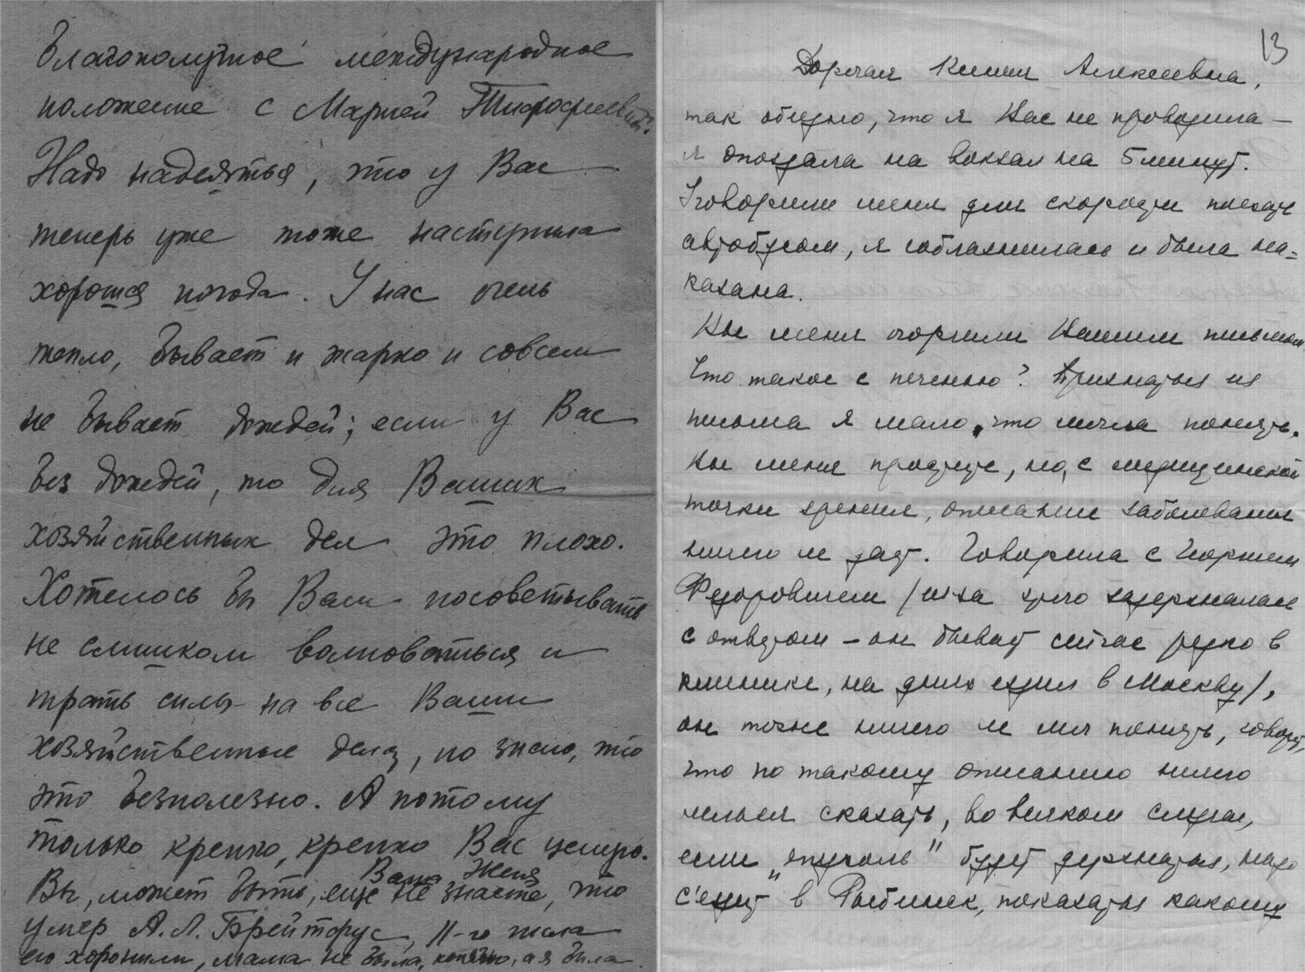 благополучное международное
положение с Марией Тимофеевной.
Надо надеяться, что у Вас
теперь уже тоже наступила
хорошая погода. У нас очень
тепло, бывает и жарко и совсем
не бывает дождей; если у Вас
без дождей, то для Ваших
хозяйственных дел это плохо.
Хотелось бы Вам посоветывать
не слишком волноваться и
трать силы на все Ваши
хозяйственные дела, но знаю, что
это бесполезно. А потому
только крепко, крепко Вас целую.
Ваша Женя
Вы, может быть, еще не знаете, что
умер А.Л. Брейтфус, 11-го мая
его хоронили, мама не была, конечно, а я была
13
Дорогая Ксения Алексеевна,
так обидно, что я Вас не проводила –
я опоздала на вокзал на 5 минут.
Уговорили меня для скорости поехать
автобусом, я соблазнилась и была на=
казана.
Вы меня огорчили Вашим письмом
Что такое с печенью? Признаться из
письма я мало, что могла понять.
Вы меня простите, но, с медицинской
точки зрения, описание заболевания
ничего не дает. Говорила с Георгием
Федоровичем / из-за чего задержалась
с ответом – он бывает сейчас редко в
клинике, на днях ездил в Москву/,
он тоже ничего не мог понять, говорит,
что по такому описанию ничего
нельзя сказать, во всяком случае,
если "опухоль" будет держаться, надо
с'ездить в Рыбинск, показаться какому